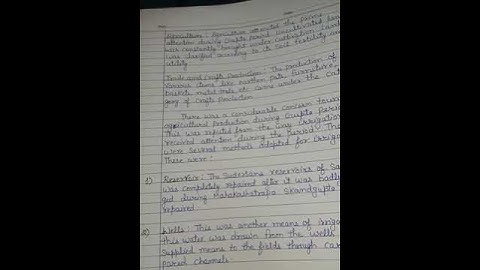 Agriculture: Agriculture attracted the prime
attention during Gupta period. Uncultivated land
was constantly brought under cultivation. Land
was classified according to its soil fertility and
utility
Trade and Crafts Production: The production of
various items like earthen pots, furniture,
baskets, metal tools etc. came under the Cate
gory of Crafts Production.
There was a considerable concern towar
agricultural production during Gupta Perio
This was reputed from the way irrigation
received attention during the period. Ther
were several methods adopted for irriga
These were:
1) Reservoir: The Sudarshana reservoirs of Sa
was completely repaired after it was badly
ged during mahakshatrapa Skandgupta
repaired.
2) Wells: This was another means of irriga
This water was drawn from the wells
supplied means to the fields though care
pared channels.